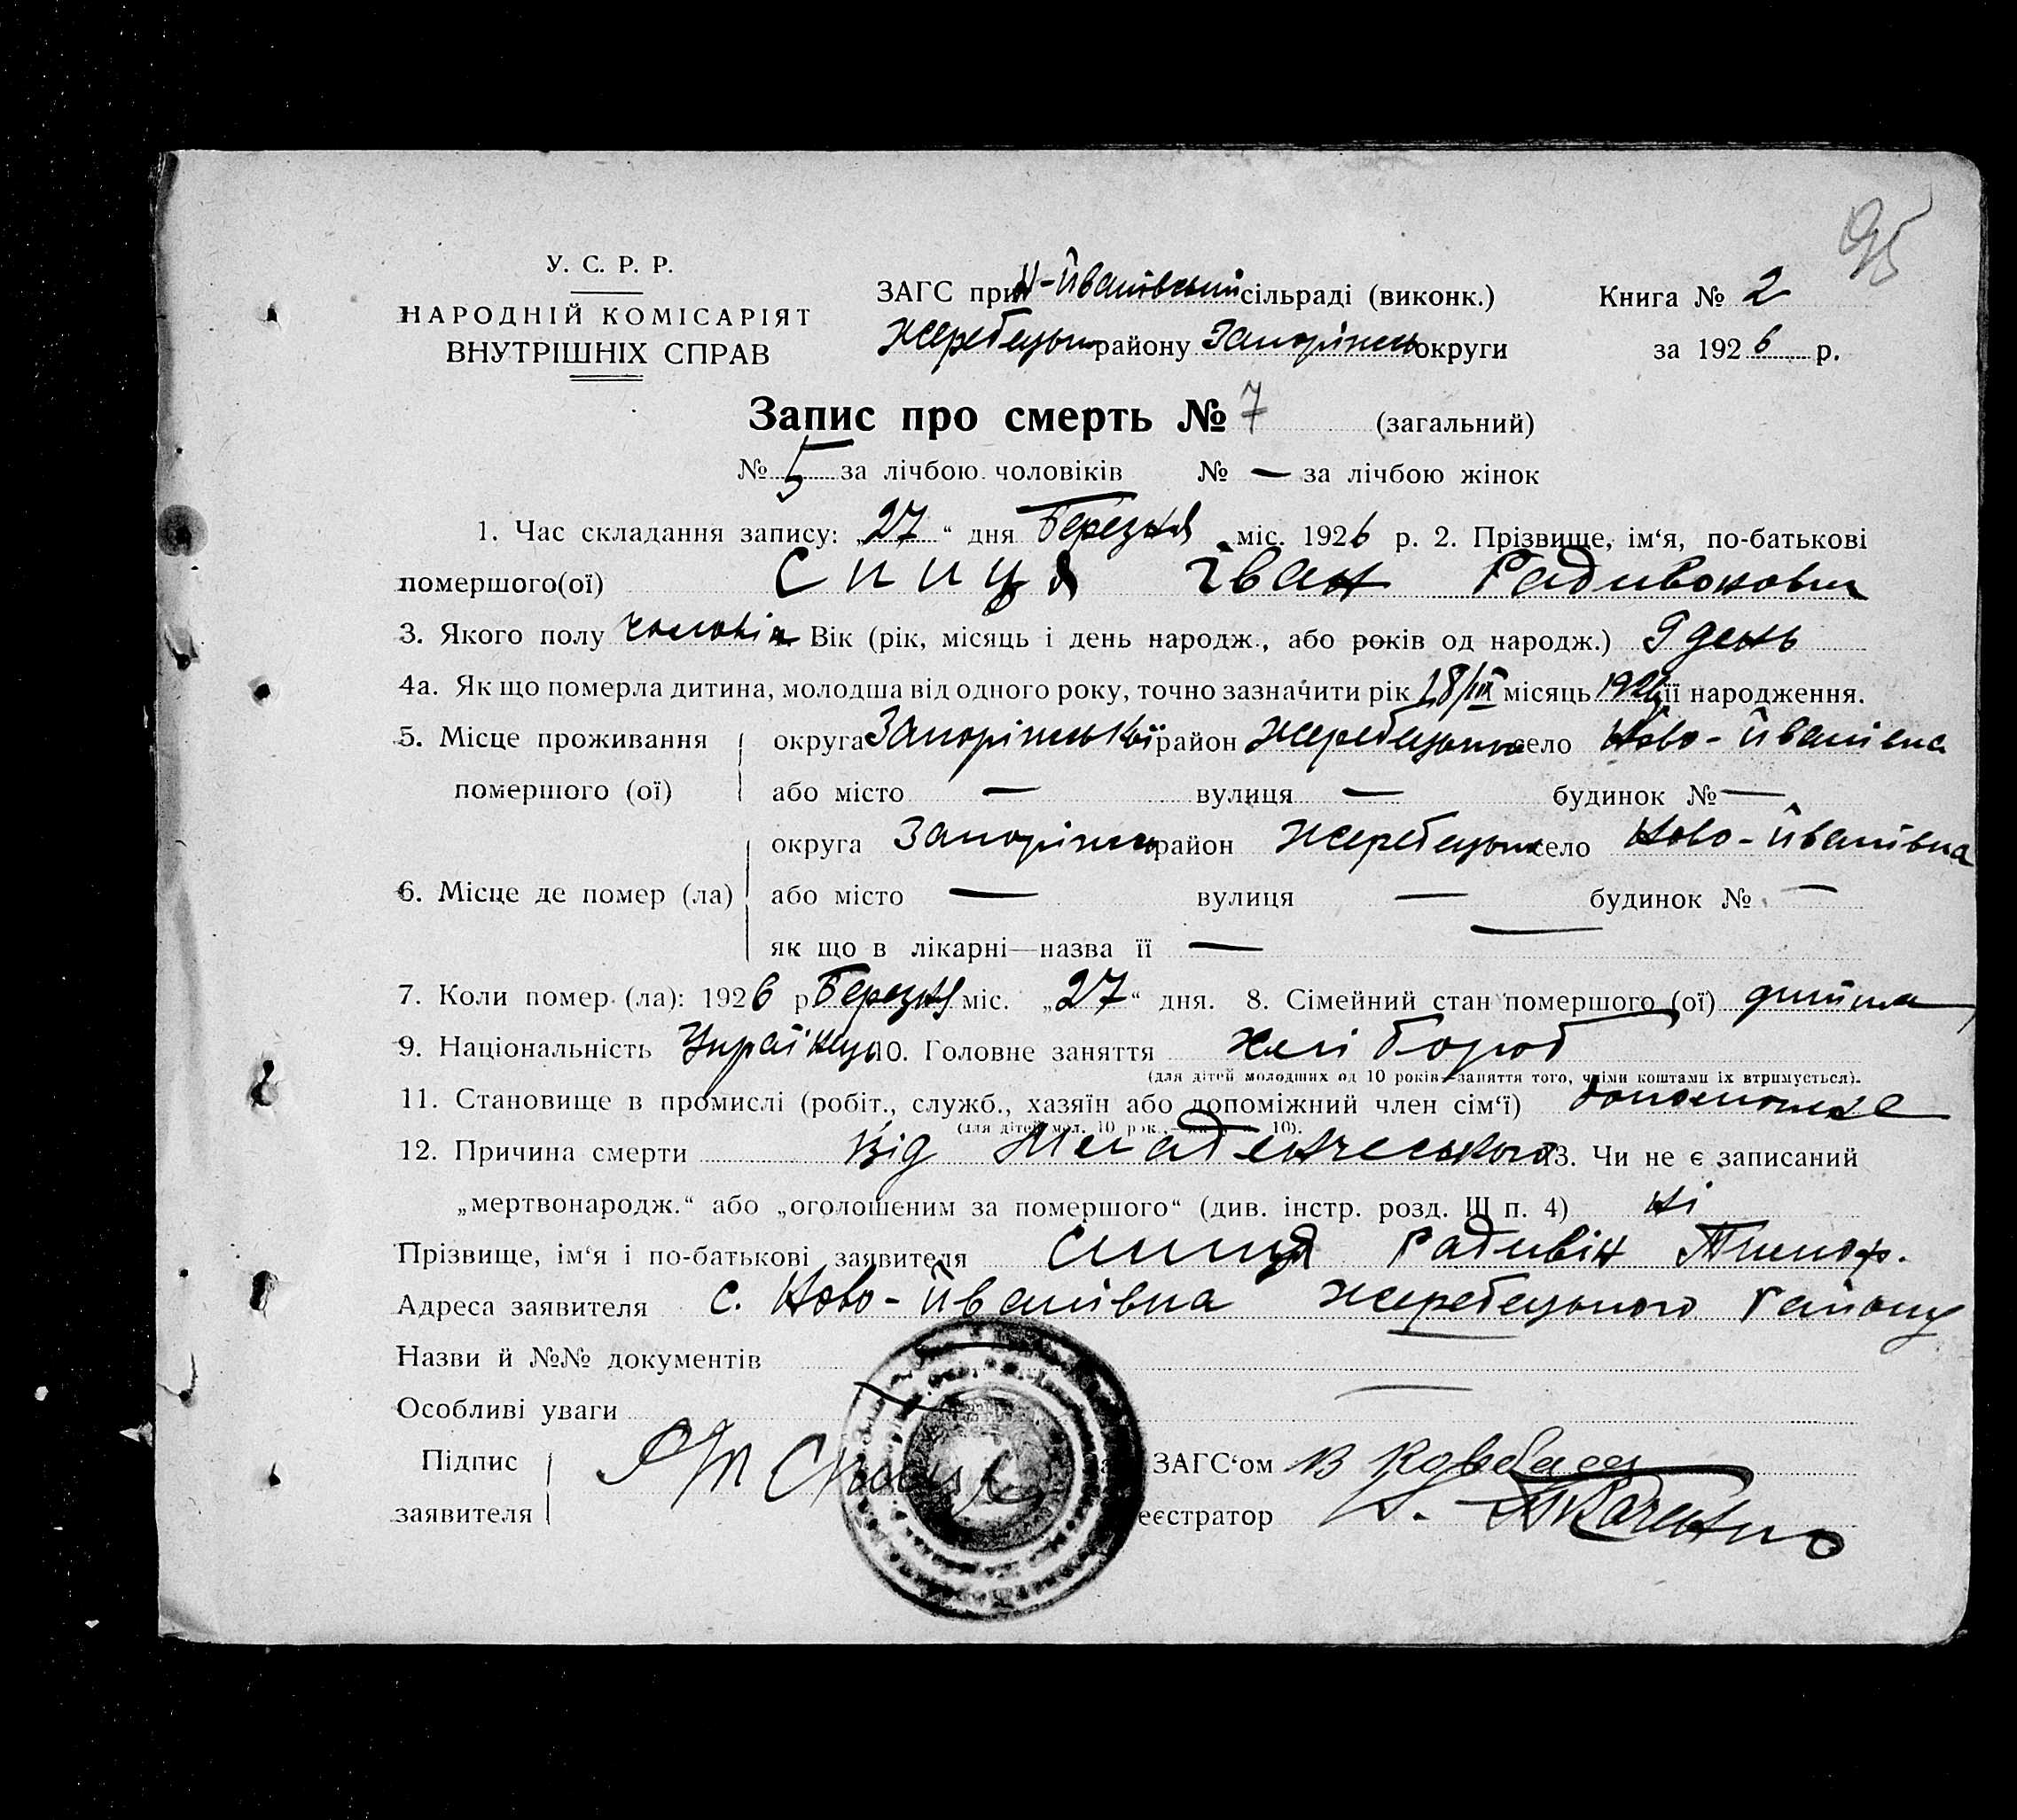 95
У. С. Р. Р.
НАРОДНІЙ КОМІСАРІЯТ
ВНУТРІШНІХ СПРАВ
ЗАГС при Н-Йванівській сільраді (виконк.)
Жеребецьк району Запоріжськ округи
Книга № 2
за 1926 р.
Запис про смерть № 7 (загальний)
№ 5 за лічбою чоловіків № — за лічбою жінок
1. Час складання запису: „27“ дня Березня міс. 1926 р. 2. Прізвище, ім‘я, по-батькові
помершого(ої) Спиця Іван Радивонович
3. Якого полу чоловік Вік (рік, місяць і день народж., або років од народж.) 9 день
4а. Як що померла дитина, молодша від одного року, точно зазначити рік 18/III місяць 1926 її народження.
5. Місце проживання помершого (ої)
округа Запоріжської район Жеребецького село Ново-Йванівка
або місто — вулиця — будинок № —
6. Місце де помер (ла)
округа Запоріжськ район Жеребецьк село Ново-Йванівка
або місто — вулиця — будинок № —
як що в лікарні—назва її —
7. Коли помер (ла): 1926 р. Березня міс. „27“ дня. 8. Сімейний стан помершого (ої)
9. Національність Українец 10. Головне заняття хлібороб
(для дітей молодших од 10 років—заняття того, чиїми коштами їх втримується).
11. Становище в промислі (робіт., служб., хазяїн або допоміжний член сім‘ї)
(для дітей мол. 10 рок., 10).
12. Причина смерти Від Младенческого 13. Чи не є записаний
„мертвонародж.“ або „оголошеним за помершого“ (див. інстр. розд. III п. 4) ні
Прізвище, ім‘я і по-батькові заявителя Спиця Радивін Тимоф.
Адреса заявителя с. Ново-Йванівка Жеребецького Району
Назви й №№ документів
Особливі уваги —
Підпис заявителя
ЗАГС‘ом В Ковбаса
еєстратор Ткаченко